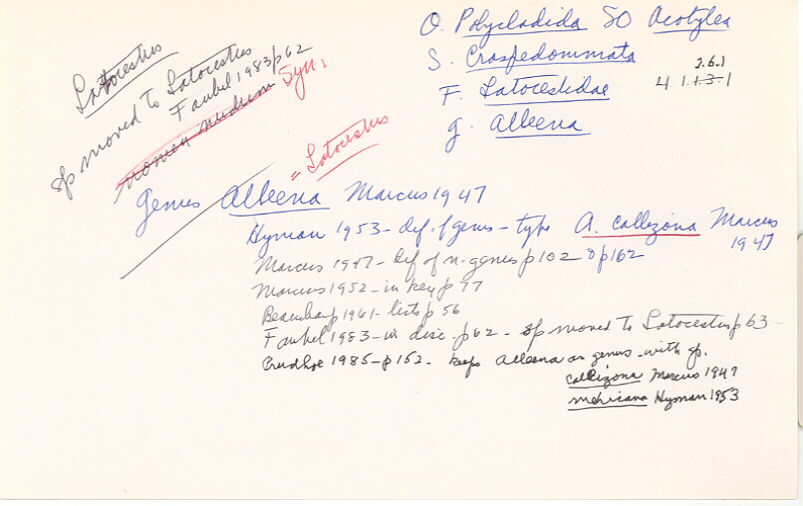 O. Polycladida SO Acotylea
S. Craspedommata
F. Latocestidae
2.6.1
4 1.1.3.1
g. Alleena
Latocestus
sp moved to Latocestus
Faubel 1983/p62
nomen nudum Syn:
= Latocestus
genus Alleena Marcus 1947
Hyman 1953 - def. of genus - type A. callizona Marcus
1947
Marcus 1947 - Def of n. genus p 102 & p 162
Marcus 1952 - in key p 77
Beauchamp 1961 - lists p 56
Faubel 1983 - in disc. p 62 - sp moved to Latocestus p 63
Prudhoe 1985 - p 152 - keeps Alleena as genus - with sp.
callizona Marcus 1947
mexicana Hyman 1953